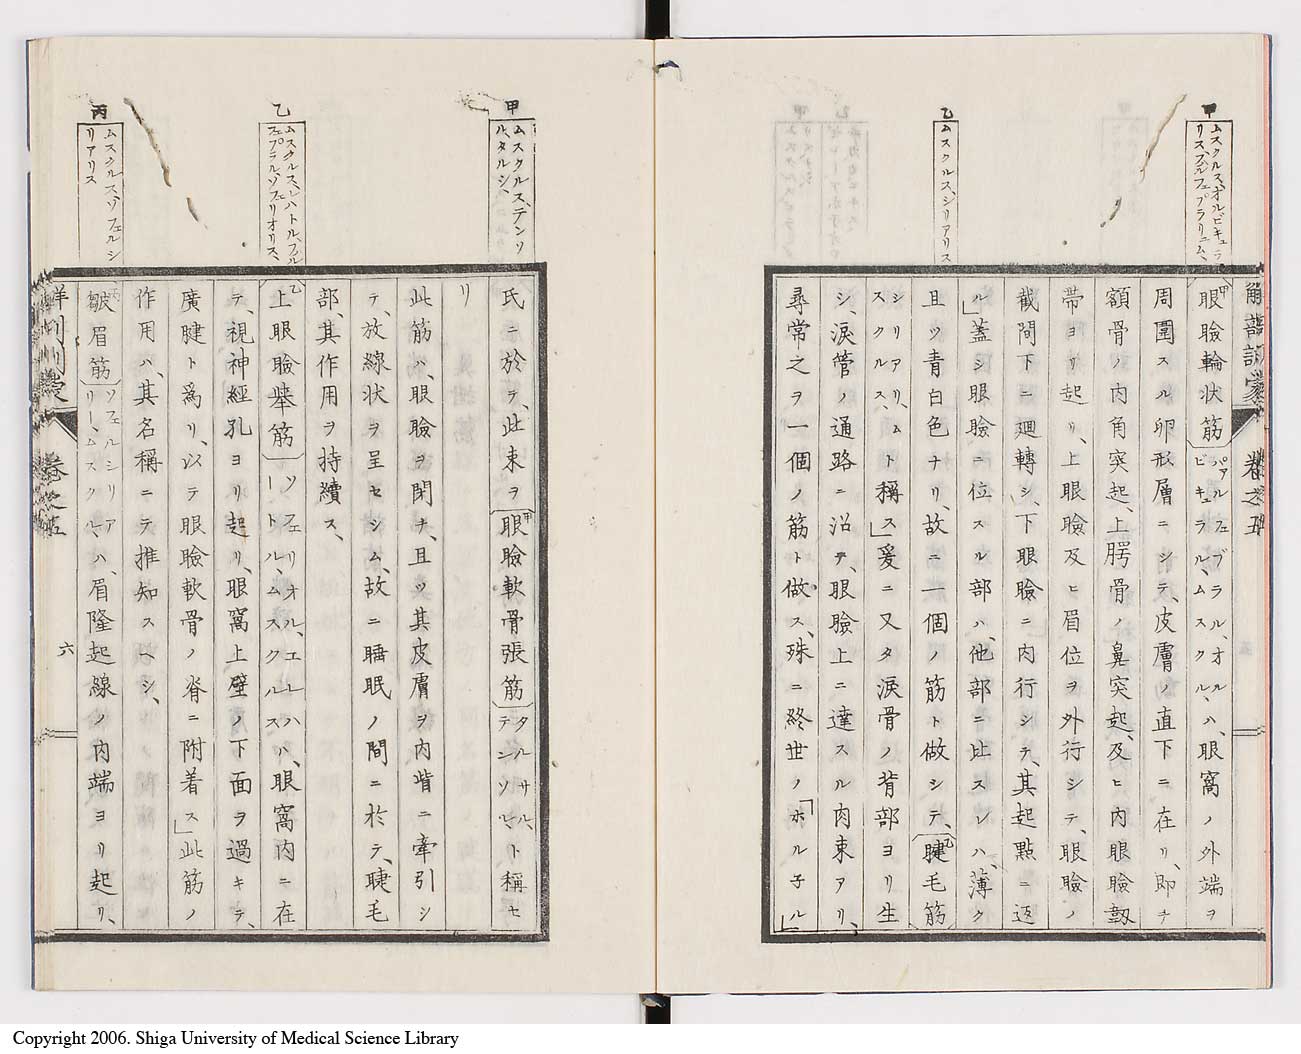 甲
ムスクルス、オルビキュラ
リス、パルフェプラリニム、
乙
ムスクルス、シリアリス
解剖訓蒙
巻之五
甲眼瞼輪状筋パァルフェブラル、オル
ビキュラル、ムスクル、ハ、眼窩ノ外端ヲ
周圍スル卵形層ニシテ、皮膚ノ直下ニ在リ、即チ
額骨ノ内角突起、上腭骨ノ鼻突起、及ヒ内眼瞼韌
帶ヨリ起リ、上眼瞼及ヒ眉位ヲ外行シテ、眼瞼ノ
截間下ニ廻轉シ、下眼瞼ニ内行シテ、其起點ニ返
ル」蓋シ眼瞼ニ位スル部ハ、他部ニ比スレハ、薄ク
且ツ青白色ナリ、故ニ一個ノ筋ト做シテ、乙睫毛筋
シリアリ、ム
スクルス、ト稱ス」爰ニ又タ淚骨ノ背部ヨリ生
シ、淚管ノ通路ニ沿テ、眼瞼上ニ達スル肉束アリ、
尋常之ヲ一個ノ筋ト做ス、殊ニ終世ノ「ホル子ル」
甲
ムスクルス、テンソ
ル、タルシ、
乙
ムスクルス、レハトル、プル
フェプラル、ソフェリオリス、
丙
ムスクルス、ソフェルシ
リアリス
氏ニ於テ、此束ヲ甲眼瞼軟骨張筋タルサル、
テンソル、ト稱セ
リ
此筋ハ、眼瞼ヲ閉チ、且ツ其皮膚ヲ内眥ニ牽引シ
テ、放線状ヲ呈セシム、故ニ睡眠ノ間ニ於テ、睫毛
部、其作用ヲ持續ス、
乙上眼瞼擧筋ソフェリオル、エレハ
ートル、ムスクルスハ、眼窩内ニ在
テ、視神經孔ヨリ起リ、眼窩上壁ノ下面ヲ過キテ、
廣腱ト爲リ、以テ眼瞼軟骨ノ脊ニ附着ス」此筋ノ
作用ハ、其名稱ニテ推知スヘシ、
丙皺眉筋ソフェルシリア
リー、ムスクル、ハ、眉隆起線ノ内端ヨリ起リ、
巻之五
六
Copyright 2006. Shiga University of Medical Science Library